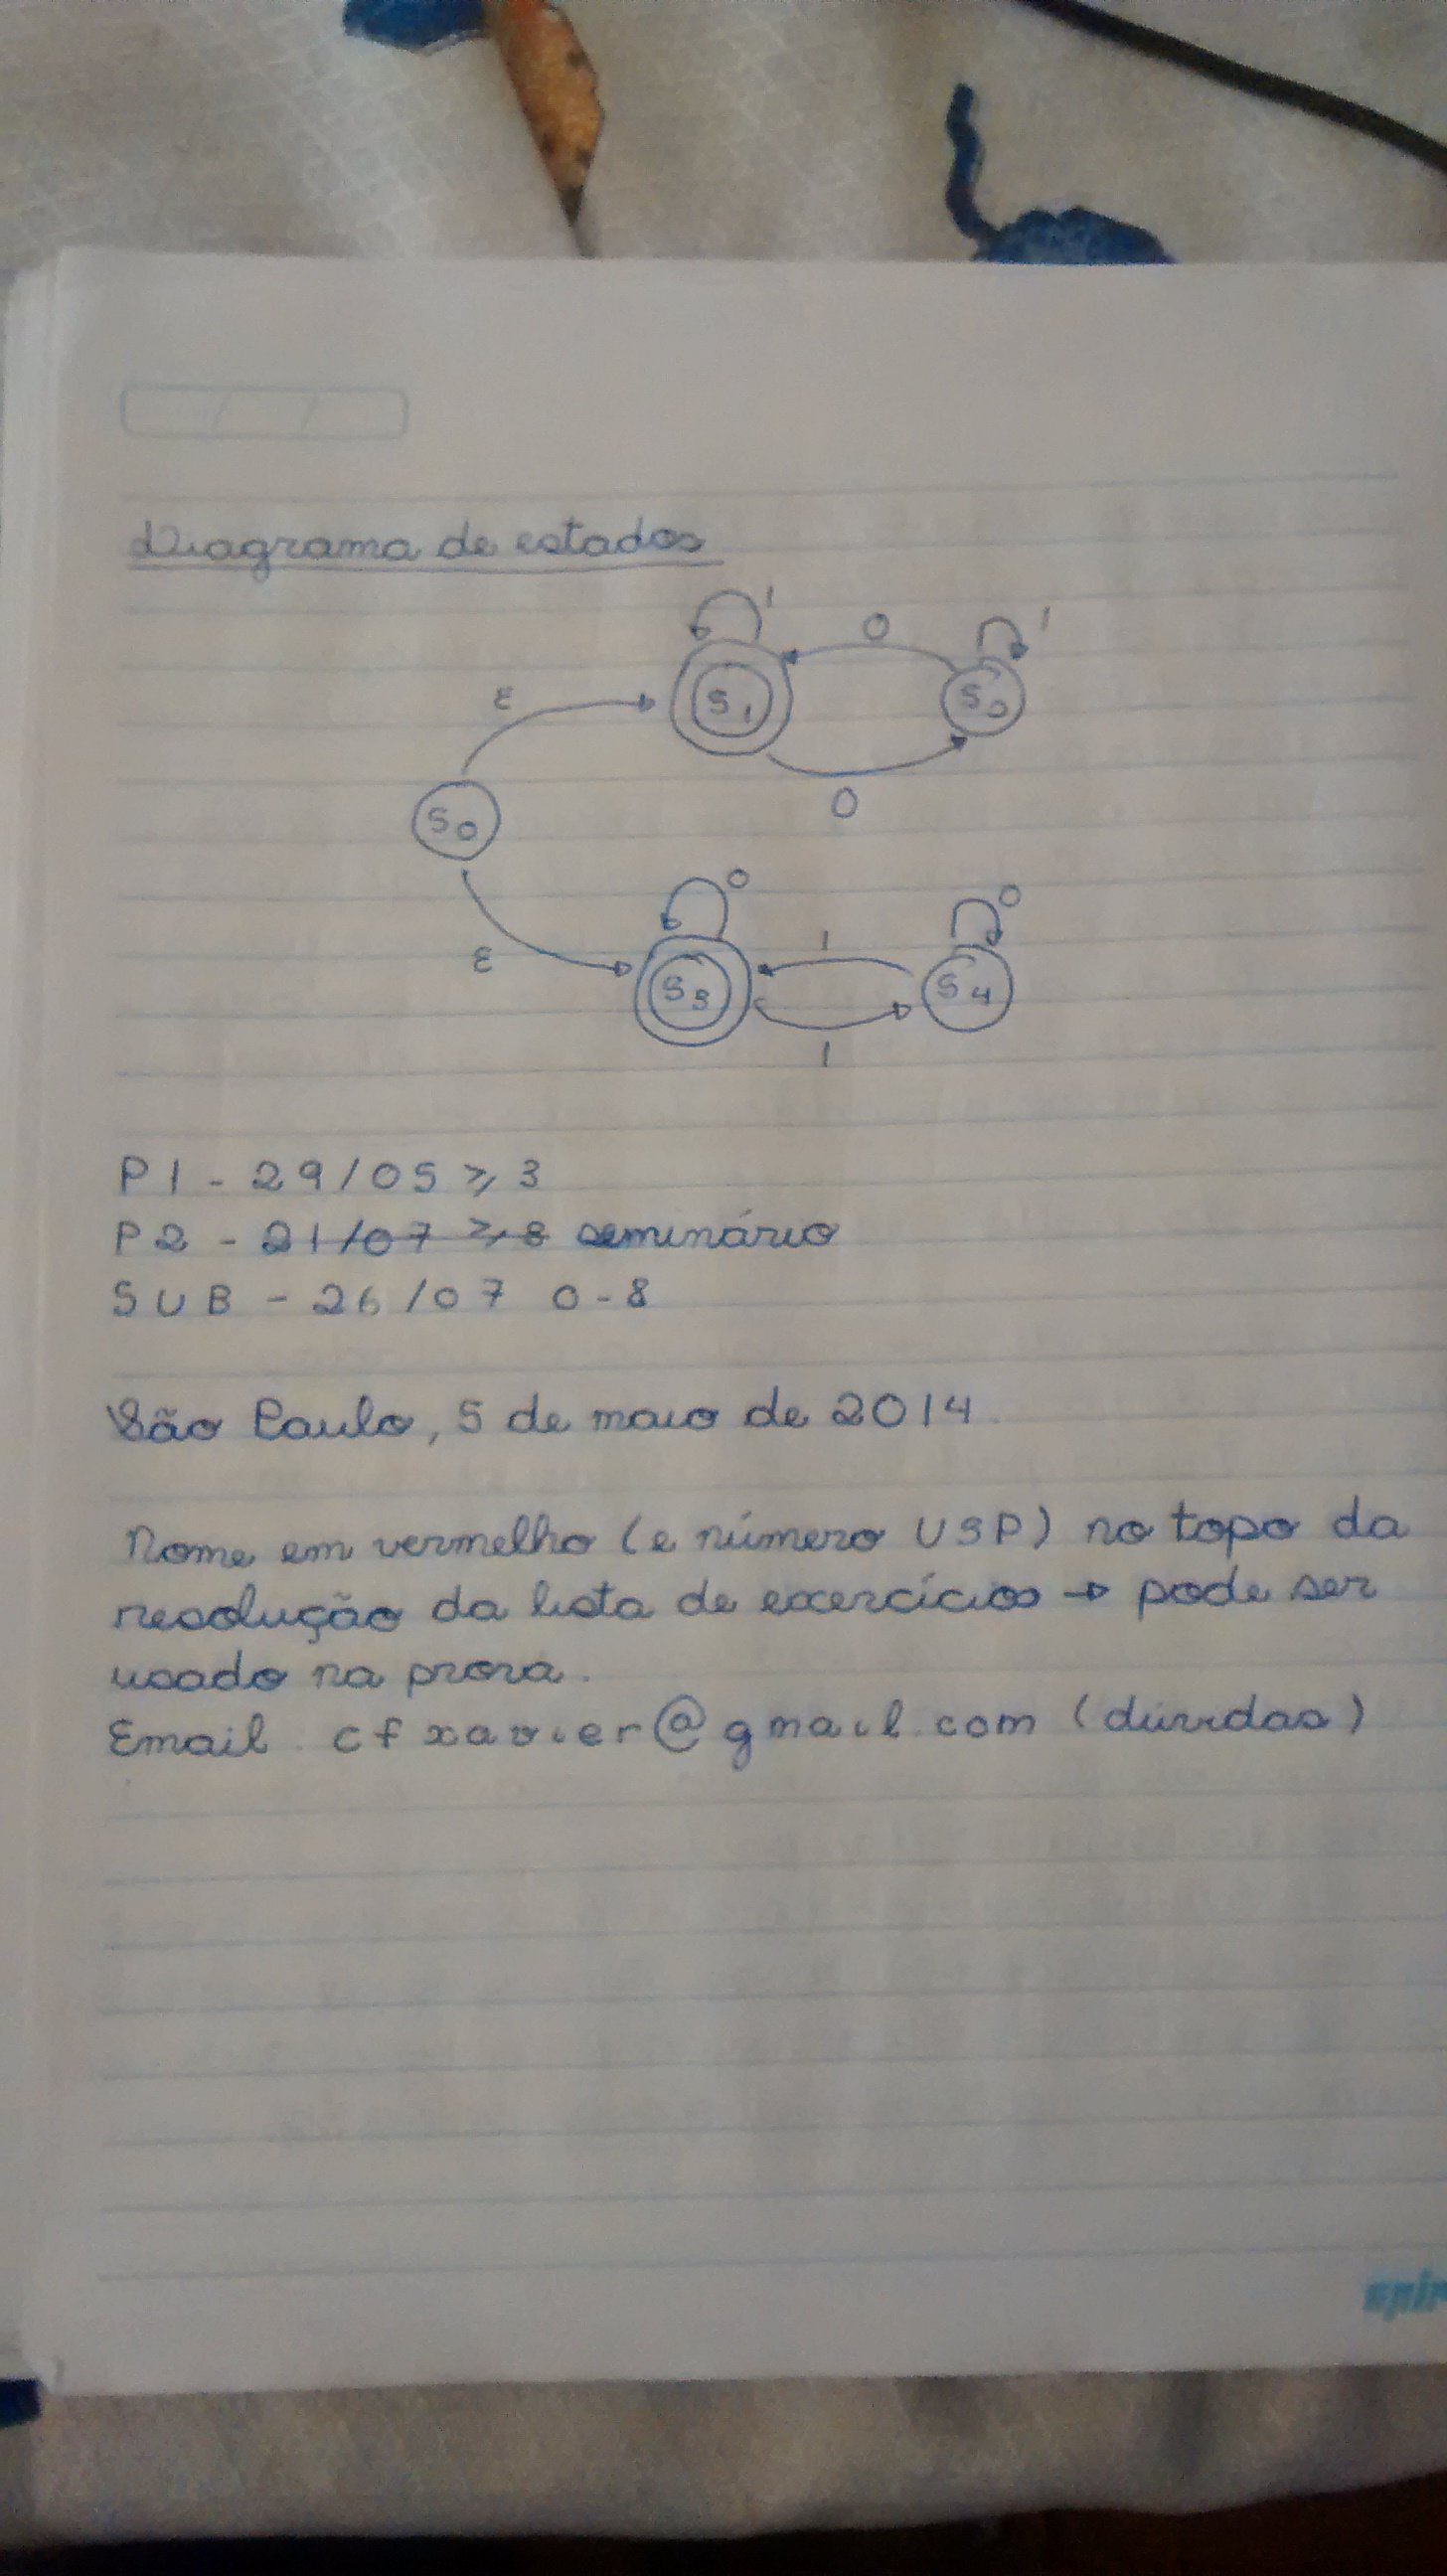 Diagrama de estados
1
0
1
ε
S1
S2
0
S0
0
0
1
ε
S3
S4
1
P1 - 29/05 ≥ 3
P2 - 21/07 ≥ 8 seminário
SUB - 26/07 0-8
São Paulo, 5 de maio de 2014.
Nome em vermelho (e número USP) no topo da
resolução da lista de exercícios → pode ser
usado na prova.
Email: cfxavier@gmail.com (dúvidas)